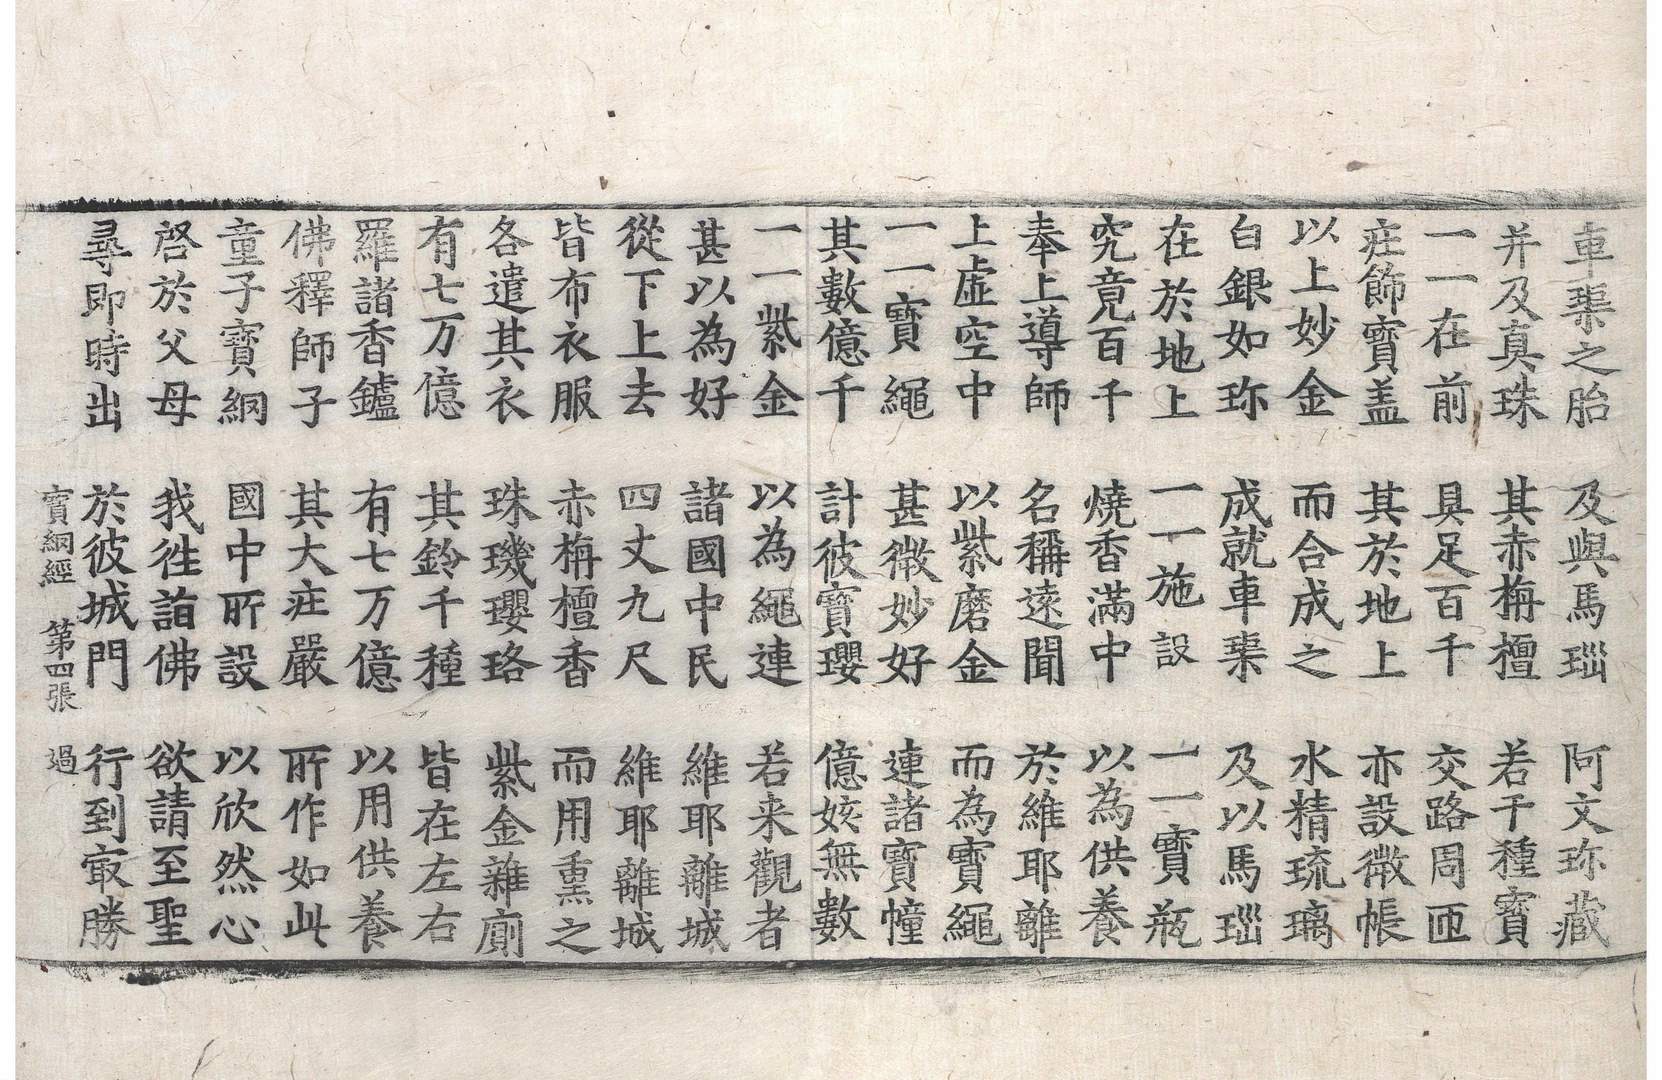 車璖之胎 及與馬瑙 阿文珎藏
并及真珠 其赤栴檀 若干種寶
一一在前 具足百千 交路周迊
庄飾寶盖 其於地上 亦設微帳
以上妙金 而合成之 水精琉璃
白銀如珎 成就車璖 及以馬瑙
在於地上 一一施設 一一寶瓶
究竟百千 燒香滿中 以為供養
奉上導師 名稱遠聞 於維耶離
上虛空中 以紫磨金 而為寶繩
一一寶繩 甚微妙好 連諸寶幢
其數億千 計彼寶瓔 億姟無數
一一紫金 以為繩連 若来觀者
甚以為好 諸國中民 維耶離城
從下上去 四丈九尺 維耶離城
皆布衣服 赤栴檀香 而用熏之
各遣其衣 珠璣瓔珞 紫金雜廁
有七万億 其鈴千種 皆在左右
羅諸香鑪 有七万億 以用供養
佛釋師子 其大庄嚴 所作如此
童子寶網 國中所設 以欣然心
啓於父母 我徃詣佛 欲請至聖
尋即時出 於彼城門 行到㝡勝
寶網經 第四張 過